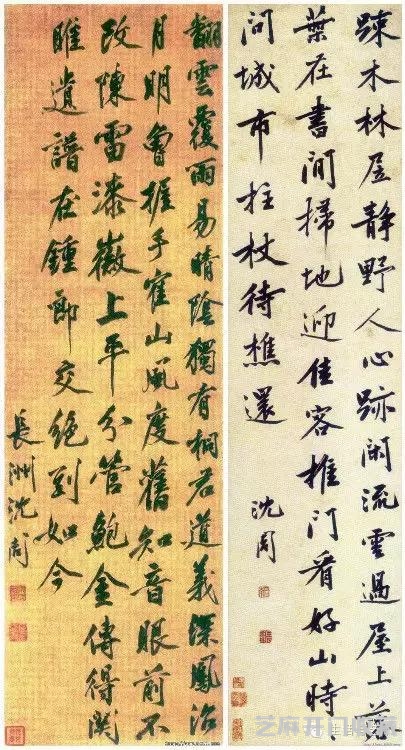 疎木林居静野人心跡闲流雲過屋上落
葉在書間掃地迎佳客推門看好山時
問城市拄杖待樵還
沈周
翻雲覆雨易晴陰獨有桐君道義深鳳沼
月明曾握手寉山風度舊知音眼前不
改陳雷漆徽上平分管鮑金傳得関
雎遺譜在鍾郎交絶到如今
長洲沈周
芝麻开门收藏